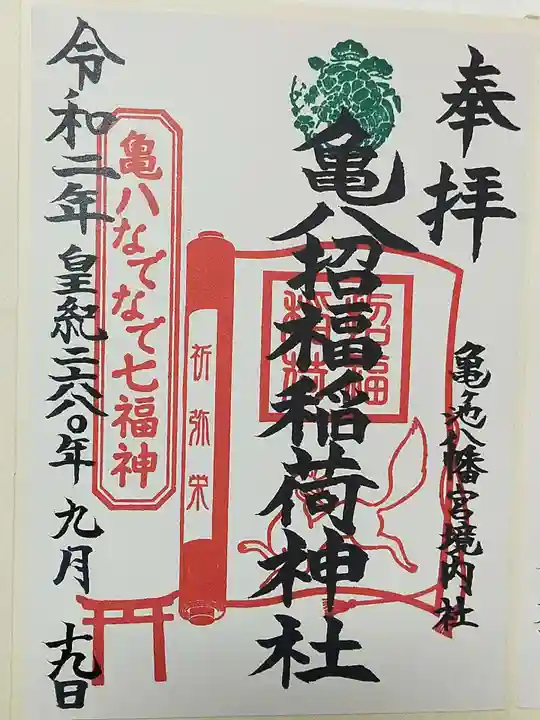 奉拝
亀ヶ池八幡宮境内社
亀八招福稲荷神社
招福
稲荷
祈弥栄
亀八なでなで七福神
令和二年 皇紀二六八〇年 九月 十九日